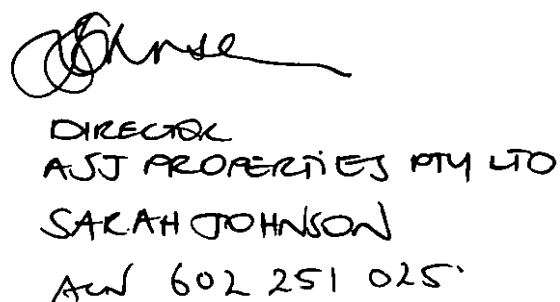 DIRECTOR
ASJ PROPERTIES PTY LTD
SARAH JOHNSON
ACN 602 251 025